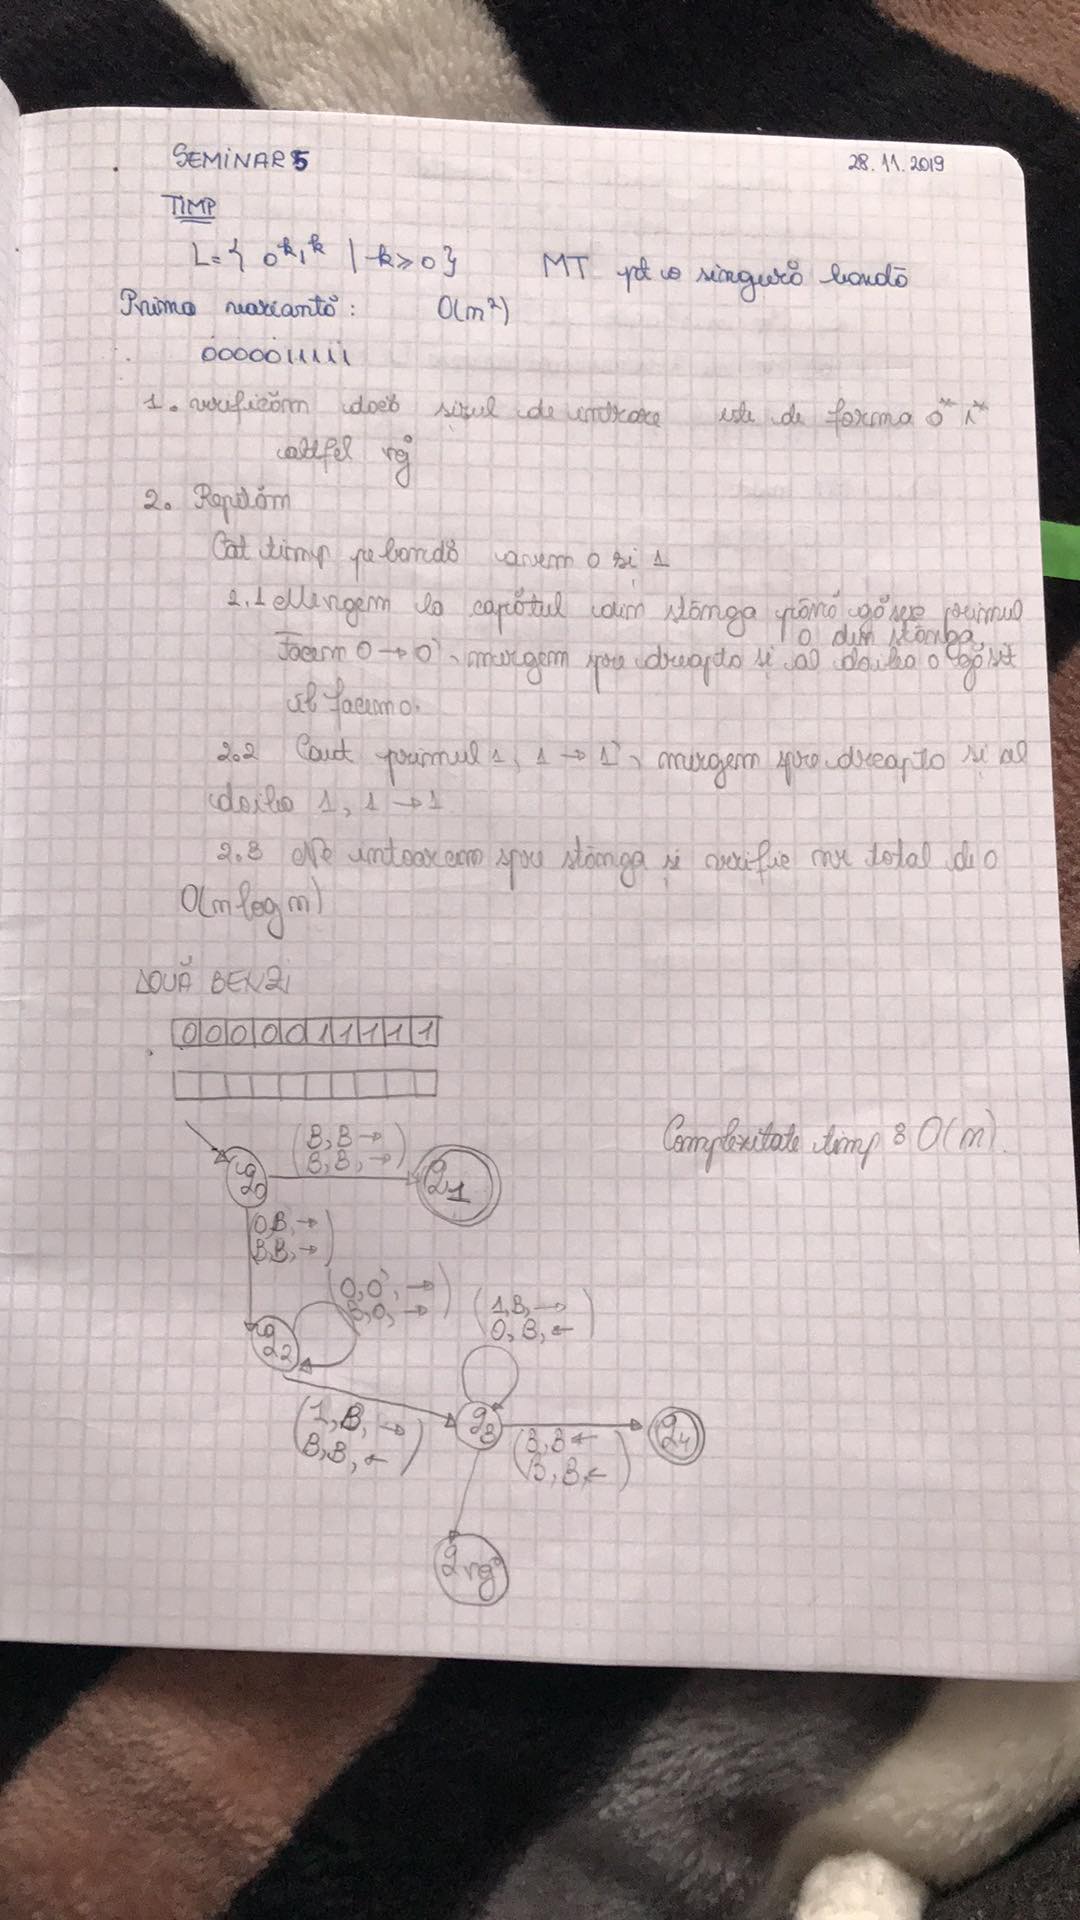 SEMINAR 5
28.11.2019
TIMP
L = { 0^k 1^k | k ≥ 0 } MT pt o singură bandă
Prima variantă: O(m²)
0000011111
1. verificăm dacă șirul de intrare este de forma 0* 1*
altfel rej
2. Repetăm
Cât timp pe bandă avem 0 și 1
2.1 Mergem la capătul din stânga până găsesc primul
0 din stânga.
Facem 0 → 0', mergem spre dreapta și al doilea 0 găsit
îl facem 0.
2.2 Caut primul 1, 1 → 1', mergem spre dreapta și al
doilea 1, 1 → 1
2.3 Ne întoarcem spre stânga și verific nr total de 0
O(m log m)
DOUĂ BENZI
0 0 0 0 0 1 1 1 1 1
Complexitate timp: O(m).
(B, B →
B, B, →)
q0
q1
(0, B, →
B, B, →)
(0, 0', →
B, 0, →)
(1, B, →
0, B, ←)
q2
(1, B, →
B, B, ←)
q3
(B, B ←
B, B, ←)
q4
q rej